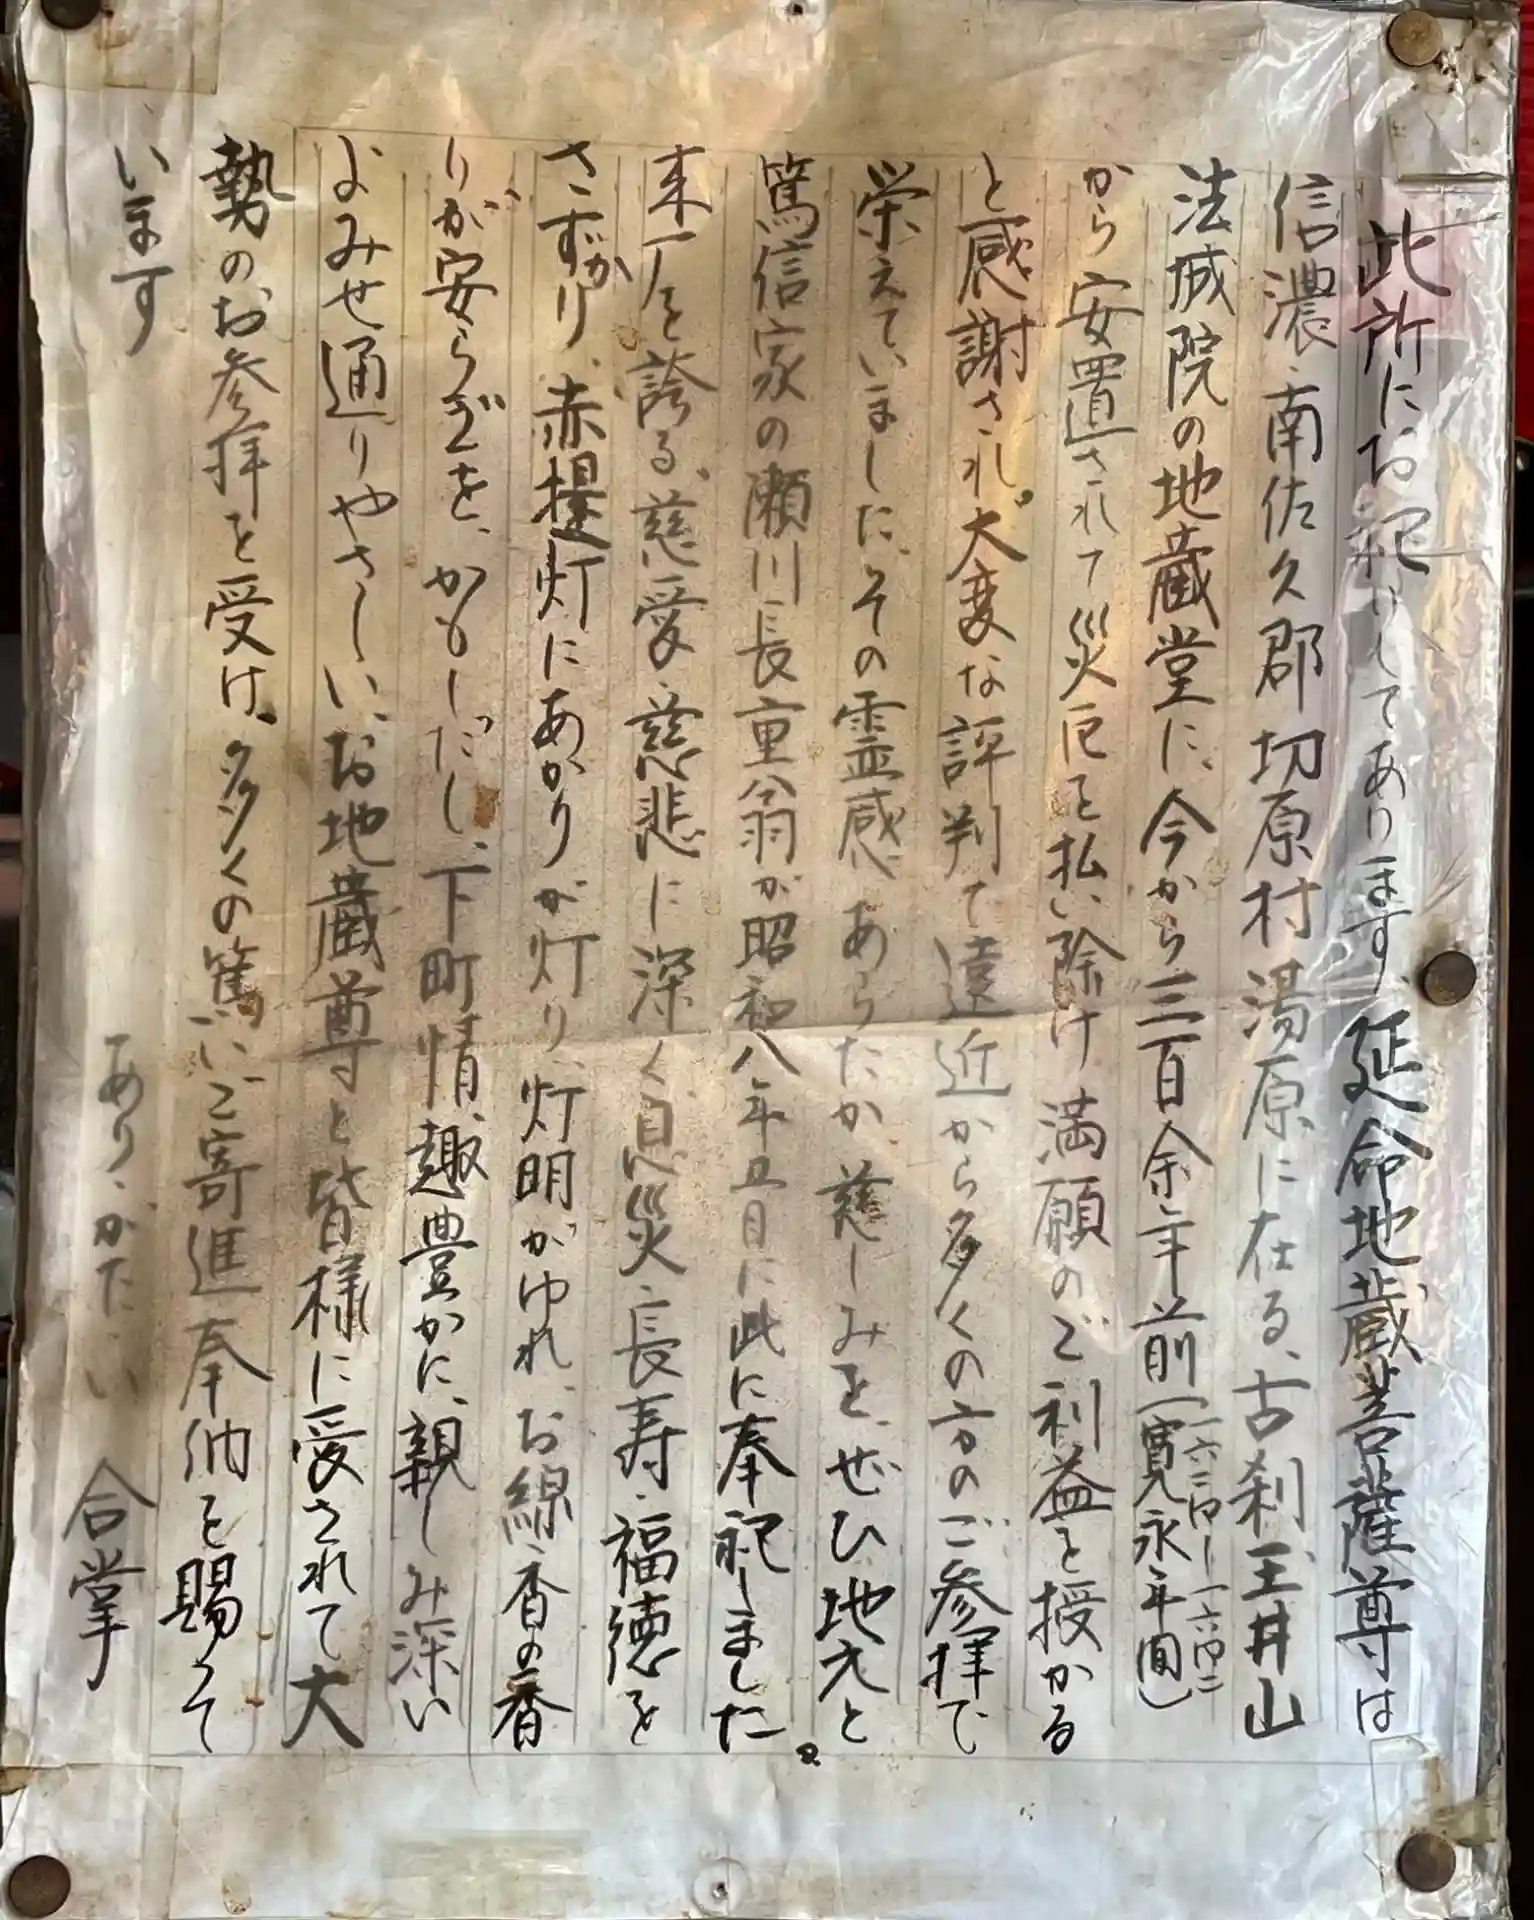 此所にお祀りしてあります、延命地蔵菩薩尊は
信濃・南佐久郡切原村湯原に在る、古刹王井山
法城院の地蔵堂に、今から三百余年前(寛永年間)
一六二四〜一六四二
から安置されて災厄を払い除け満願のご利益を授かる
と感謝され。大変な評判で遠近から多くの方のご参拝で
栄えていました、その霊感あらたか、慈しみを、ぜひ地元と
篤信家の瀬川長重翁が昭和八年五月に此に奉祀しました。
末広を誇る、慈愛・慈悲に深く息災・長寿・福徳を
さずかり、赤提灯にあかりが灯り、灯明がゆれ、お線香の香
りが安らぎを、かもしだし、下町情趣豊かに、親しみ深い
よみせ通りやさしい、お地蔵尊と皆様に愛されて大
勢のお参拝を受け、多くの篤いご寄進奉納を賜って
います
ありがたい 合掌